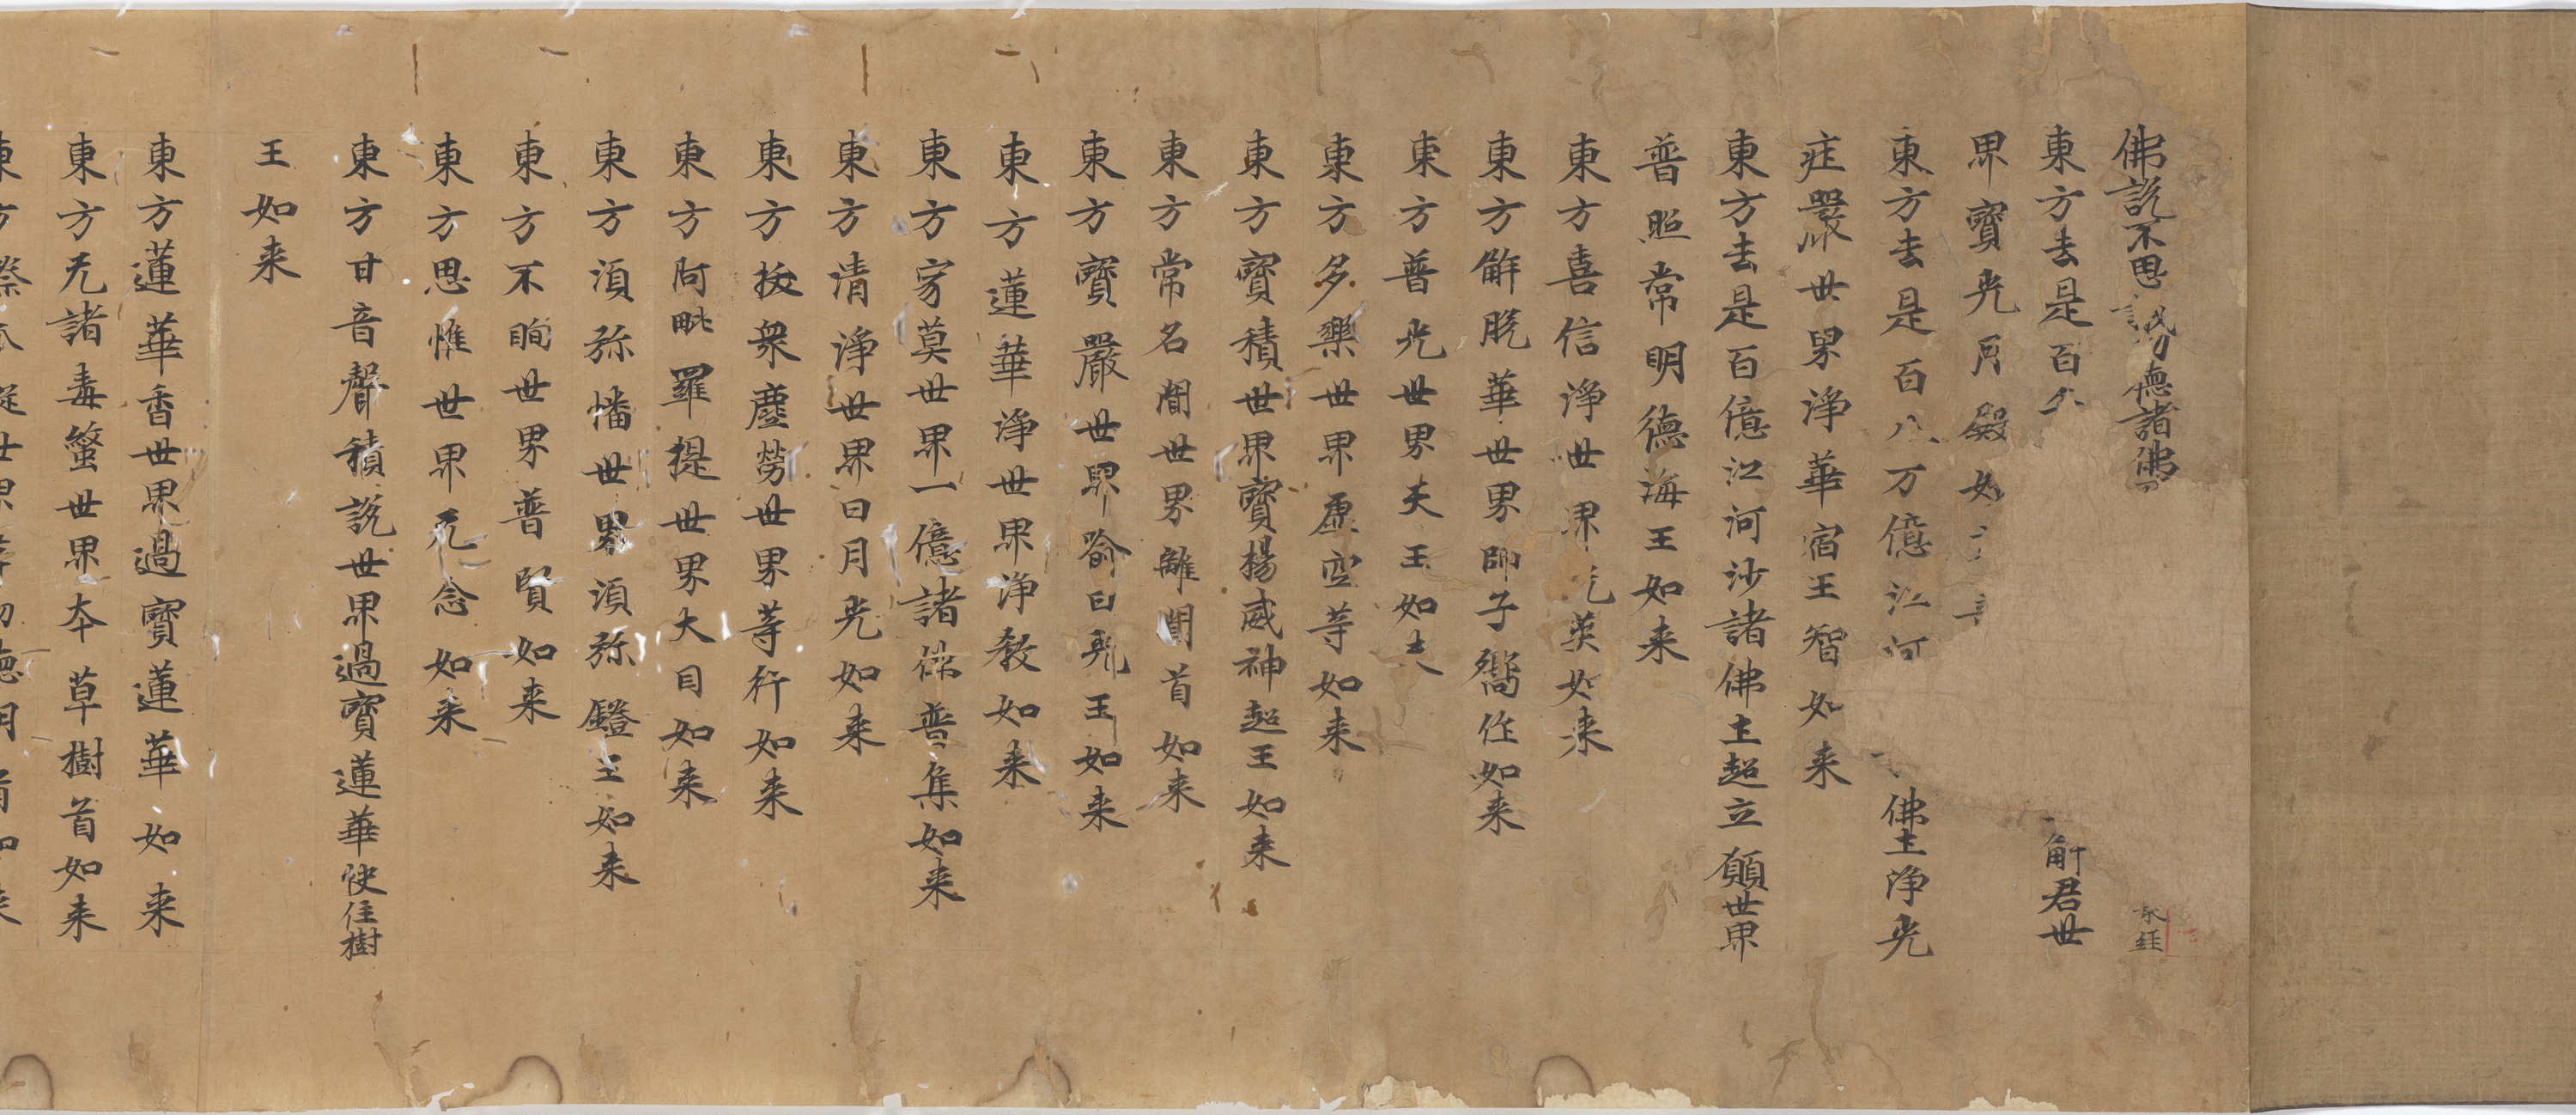 佛說不思議功德諸佛
永 經
東方去是百
解君世
界寶光月殿如
東方去是百八万億江河
佛土淨光
庄嚴世界淨華宿王智如来
東方去是百億江河沙諸佛土超立願世界
普照常明德海王如来
東方喜信淨世界 英如来
東方解脫華世界師子嚮作如来
東方普光世界天王如来
東方多樂世界虛空等如来
東方寶積世界寶揚威神超王如来
東方常名聞世界離聞首如来
東方寶嚴世界 王如来
東方蓮華淨世界淨教如来
東方 莫世界一億諸佛普集如来
東方清淨世界日月光如来
東方拔衆塵勞世界等行如来
東方阿毗羅提世界大目如来
東方湏弥幡世界湏弥鐙王如来
東方不眴世界普賢如来
東方思惟世界无念如来
東方甘音聲積說世界過寶蓮華快住樹
王如来
東方蓮華香世界過寶蓮華如来
東方无諸毒螫世界本草樹首如来